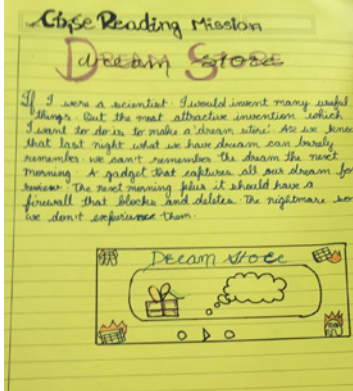 Cbse Reading Mission
Dream Store
If I were a scientist. I would invent many useful
things. But the most attractive invention which
I want to do is to make a 'dream store'. As we know
that last night what we have dream can barely
remember. we can't remember the dream the next
morning. A gadget that captures all our dream for
review. The next morning plus it should have a
firewall that blocks and deletes. The nightmare so
we don't experience them.
Dream Store